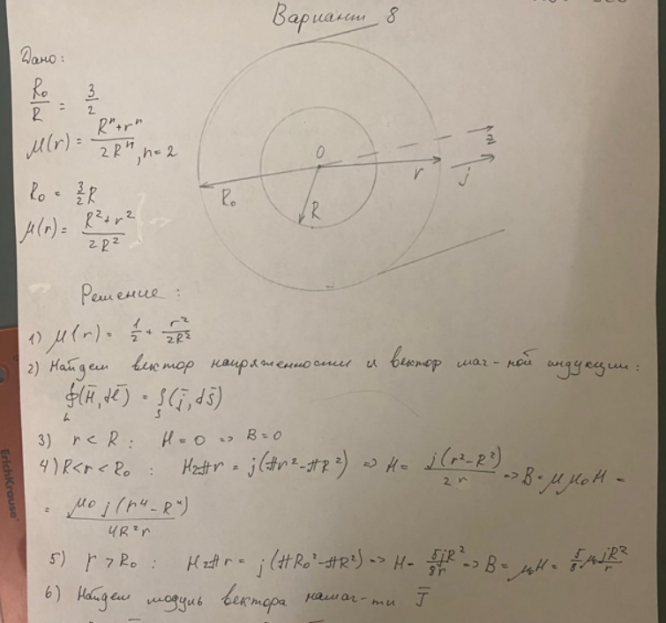 Вариант 8
Дано:
R₀/R = 3/2
μ(r) = (Rⁿ+rⁿ)/(2Rⁿ), n=2
R₀ = 3/2 R
μ(r) = (R²+r²)/(2R²)
O
z
r
j
R₀
R
Решение:
1) μ(r) = 1/2 + r²/(2R²)
2) Найдем вектор напряженности и вектор маг-ной индукции:
∮_L (H̄, dl̄) = ∫_S (j̄, ds̄)
3) r < R : H = 0 => B = 0
4) R<r<R₀ : H2πr = j(πr²-πR²) => H = j(r²-R²)/(2r) => B = μμ₀H =
= μ₀j(r⁴-R⁴)/(4R²r)
5) r > R₀ : H2πr = j(πR₀²-πR²) => H = 5jR²/(8r) => B = μ₀H = 5/8 μ₀jR²/r
6) Найдем модуль вектора намаг-ти J̄
ErichKrause